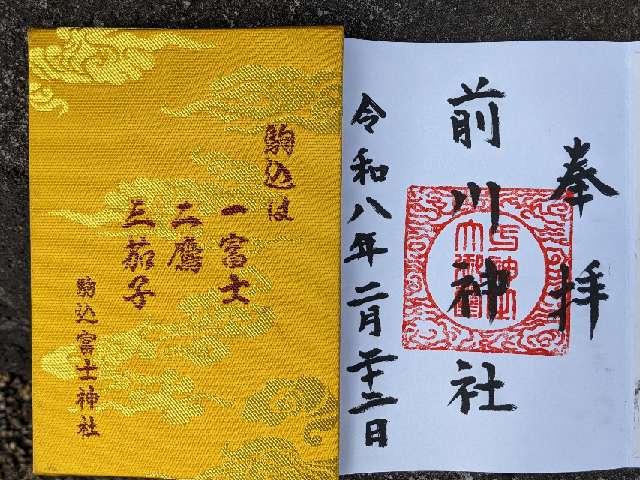 奉拝
前川神社
令和八年二月二十二日
駒込は
一富士
二鷹
三茄子
駒込富士神社